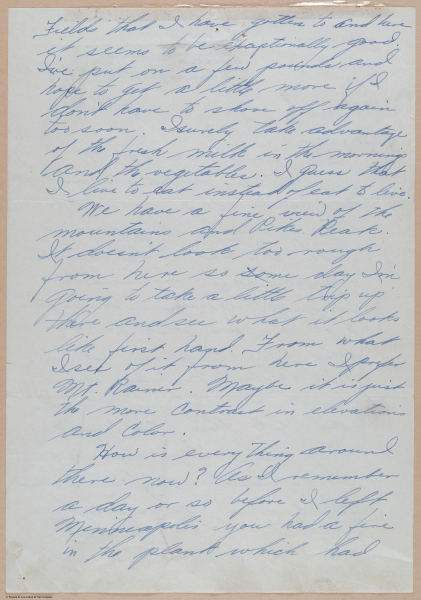 Fields that I have gotten to and here
it seems to be exceptionally good.
I've put on a few pounds and
hope to get a little more if I
don't have to shove off again
too soon. I surely take advantage
of the fresh milk in the mornings
and the vegetables. I guess that
I live to eat instead of eat to live.
We have a fine view of the
mountains and Pikes Peak.
It doesn't look too rough
from here so some day I'm
going to take a little trip up
there and see what it looks
like first hand. From what
I see of it from here I prefer
Mt. Rainer. Maybe it is just
the more contrast in elevations
and color.
How is everything around
there now? As I remember
a day or so before I left
Minneapolis you had a fire
in the plant which had